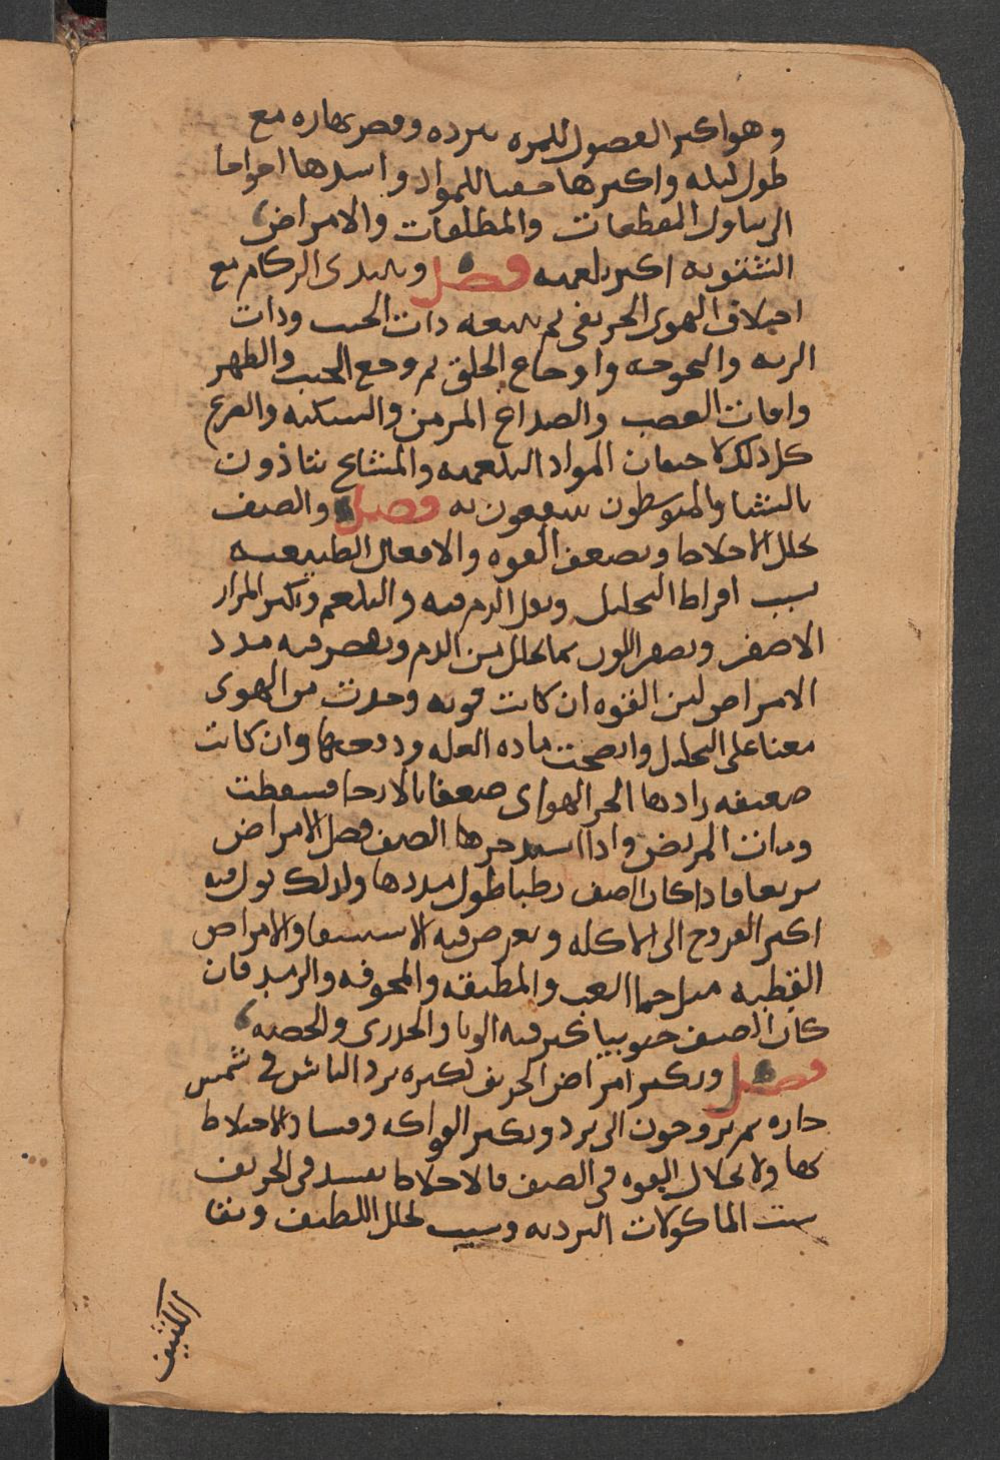 وهو اكثر الفصول للمره ببرده وقصر نهاره مع
طول ليله واكثرها حقنا للمواد واشدها احواجا
الى تناول المقطعات والملطفات والامراض
الشتويه اكثر بلغميه فصل ويبتدى الزكام مع
اختلاف الهوى الخريفى ثم يتبعه ذات الجنب وذات
الريه والبحوحه واوجاع الحلق ثم وجع الجنب والظهر
وافات العصب والصداع المزمن والسكته والصرع
كل ذلك لاحتقان المواد البلغميه والمشائخ يتاذون
بالشتا والمتوسطون ينتفعون به فصل والصيف
يحلل الاخلاط ويضعف القوه والافعال الطبيعيه
بسبب افراط التحليل ويقل الدم فيه والبلغم ويكثر المرار
الاصفر ويصفر اللون بما يحلل من الدم ويقصر فيه مدد
الامراض لين القوه ان كانت قويه وجدت من الهوى
معنا على التحليل وانضجت ماده العله ودفعتها وان كانت
ضعيفه زادها الحر الهواى ضعفا بالارخا فسقطت
ومات المريض واذا اشتد حرها الصيف فصل الامراض
سريعا فاذا كان الصيف رطبا طول مددها ولذلك يول فيه
اكثر القروح الى الاكله ويعرض فيه الاستسقا والامراض
القطيه مثل حما الغب والمطبقه والمحرقه والرمد فان
كان الصيف جنوبيا كثر فيه الوبا والجدرى والحصبه
فصل ويكثر امراض الخريف لكثره تردد الناس فى شمس
حاره ثم يروحون الى برد ويكثر الفواكه وفساد الاخلاط
بها ولانحلال القوه فى الصيف فالاخلاط تفسد فى الخريف
بسبب الماكولات الرديه وبسبب تحلل اللطيف وبقا
الكثيف